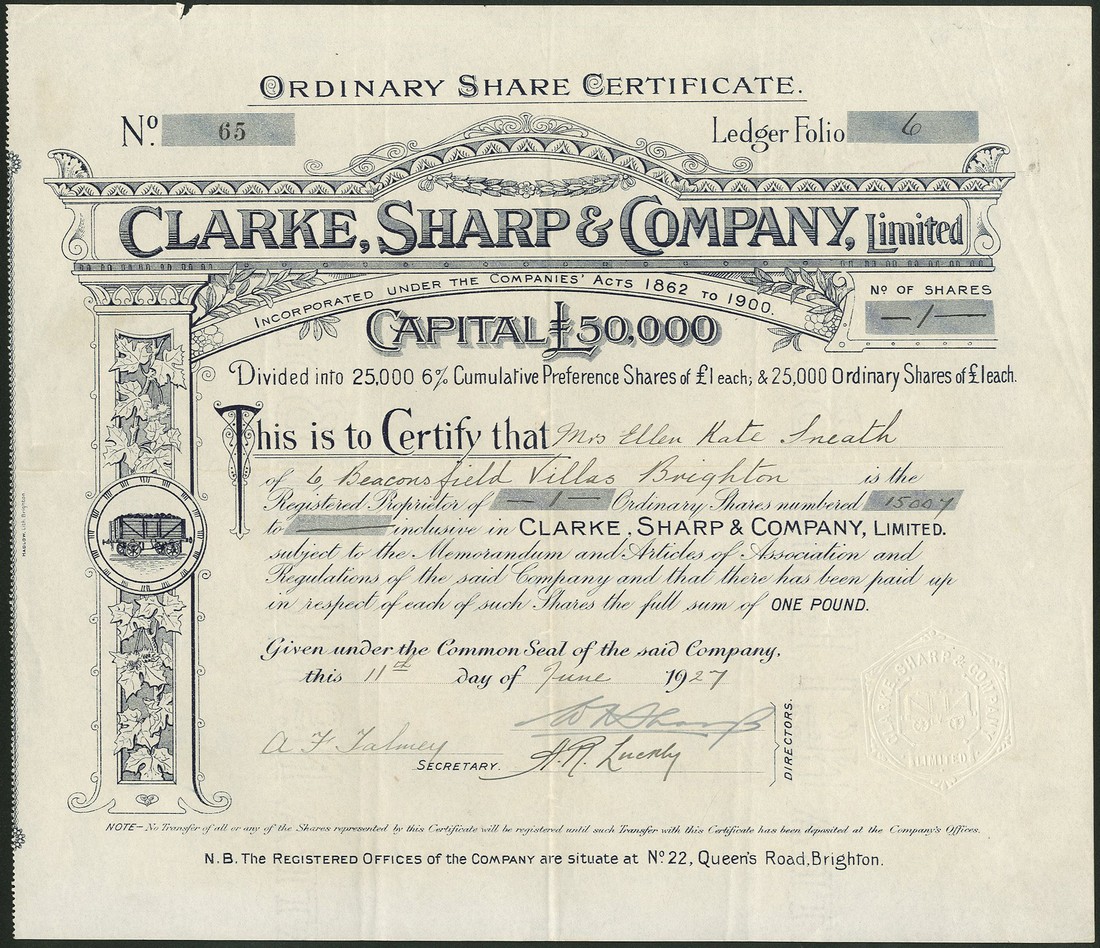 ORDINARY SHARE CERTIFICATE.
No. 65
Ledger Folio 6
CLARKE, SHARP & COMPANY, Limited
INCORPORATED UNDER THE COMPANIES' ACTS 1862 TO 1900.
No OF SHARES
—1—
CAPITAL £50,000
Divided into 25,000 6% Cumulative Preference Shares of £1 each; & 25,000 Ordinary Shares of £1 each.
This is to Certify that Mrs Ellen Kate Sneath
of 6 Beaconsfield Villas Brighton is the
Registered Proprietor of —1— Ordinary Shares numbered 15007
to —— inclusive in CLARKE, SHARP & COMPANY, LIMITED.
subject to the Memorandum and Articles of Association and
Regulations of the said Company and that there has been paid up
in respect of each of such Shares the full sum of ONE POUND.
Given under the Common Seal of the said Company,
this 11th day of June 1927
A F Talmey
SECRETARY.
DIRECTORS.
CLARKE, SHARP & COMPANY
LIMITED
NOTE— No Transfer of all or any of the Shares represented by this Certificate will be registered until such Transfer with this Certificate has been deposited at the Company's Offices.
N.B. The REGISTERED OFFICES of the COMPANY are situate at No 22, Queen's Road, Brighton.